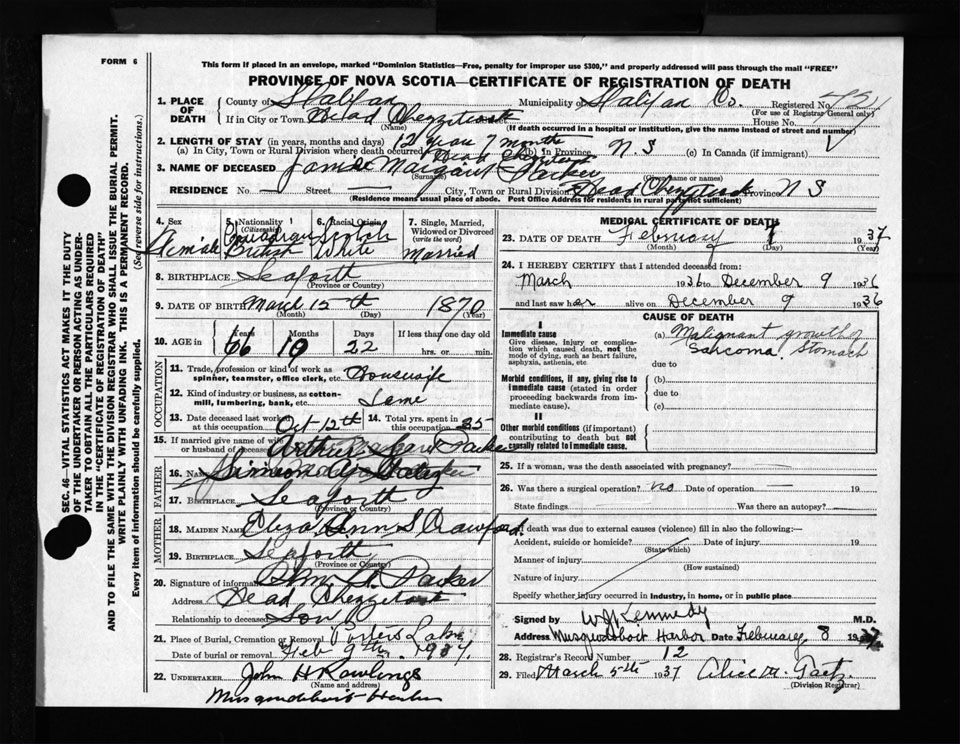 FORM 6
This form if placed in an envelope, marked "Dominion Statistics—Free, penalty for improper use $300," and properly addressed will pass through the mail "FREE"
PROVINCE OF NOVA SCOTIA—CERTIFICATE OF REGISTRATION OF DEATH
SEC. 46—VITAL STATISTICS ACT MAKES IT THE DUTY
OF THE UNDERTAKER OR PERSON ACTING AS UNDER-
TAKER TO OBTAIN ALL THE PARTICULARS REQUIRED
IN THE "CERTIFICATE OF REGISTRATION OF DEATH"
AND TO FILE THE SAME WITH THE DIVISION REGISTRAR WHO SHALL ISSUE THE BURIAL PERMIT.
WRITE PLAINLY WITH UNFADING INK. THIS IS A PERMANENT RECORD.
Every item of information should be carefully supplied. (See reverse side for instructions.)
1. PLACE OF DEATH County of Halifax Municipality of Halifax Co. Registered No.
(For use of Registrar General only)
If in City or Town Head Chezzetcook House No.
(Name) (If death occurred in a hospital or institution, give the name instead of street and number)
2. LENGTH OF STAY (in years, months and days) 12 years 7 months
(a) In City, Town or Rural Division where death occurred Head Chezzetcook (b) In Province N.S (c) In Canada (if immigrant)
3. NAME OF DECEASED Margaret Parker
(Surname) (Given name or names)
RESIDENCE No. — Street — City, Town or Rural Division Head Chezzetcook Province N S
(Residence means usual place of abode. Post Office Address for residents in rural parts not sufficient)
4. Sex Female
5. Nationality (Citizenship) Canadian British
6. Racial Origin Scotch White
7. Single, Married, Widowed or Divorced (write the word) Married
8. BIRTHPLACE Seaforth
(Province or Country)
9. DATE OF BIRTH March 15th 1870
(Month) (Day) (Year)
10. AGE in Years 66 Months 10 Days 22 If less than one day old hrs. or min.
OCCUPATION
11. Trade, profession or kind of work as spinner, teamster, office clerk, etc. Housewife
12. Kind of industry or business, as cotton-mill, lumbering, bank, etc. Same
13. Date deceased last worked at this occupation Oct 12th 14. Total yrs. spent in this occupation 35
15. If married give name of wife or husband of deceased Arthur Parker
FATHER
16. Name
17. Birthplace Seaforth
(Province or Country)
MOTHER
18. MAIDEN NAME Eliza Ann Crawford.
19. BIRTHPLACE Seaforth
(Province or Country)
20. Signature of informant Parker
Address Head Chezzetcook
Relationship to deceased Son
21. Place of Burial, Cremation or Removal Porters Lake
Date of burial or removal Feb 9th. 1937.
22. UNDERTAKER John H Rawlings
(Name and address)
Musquodoboit Harbor
MEDICAL CERTIFICATE OF DEATH
23. DATE OF DEATH February 7 1937
(Month) (Day) (Year)
24. I HEREBY CERTIFY that I attended deceased from:
March 1936 to December 9 1936
and last saw her alive on December 9 1936
CAUSE OF DEATH
I
Immediate cause
Give disease, injury or complication which caused death, not the mode of dying, such as heart failure, asphyxia, asthenia, etc.
(a) Malignant growth
Sarcoma Stomach
due to
Morbid conditions, if any, giving rise to immediate cause (stated in order proceeding backwards from immediate cause).
(b)
due to
(c)
II
Other morbid conditions (if important) contributing to death but not causally related to immediate cause.
25. If a woman, was the death associated with pregnancy? —
26. Was there a surgical operation? no Date of operation — 19
State findings Was there an autopsy?
If death was due to external causes (violence) fill in also the following:—
Accident, suicide or homicide? Date of injury 19
(State which)
Manner of injury
(How sustained)
Nature of injury
Specify whether injury occurred in industry, in home, or in public place
Signed by W J Kennedy M.D.
Address Musquodoboit Harbor Date February 8 1937
28. Registrar's Record Number 12
29. Filed March 5th 1937 Alice M. Gaetz
(Division Registrar)